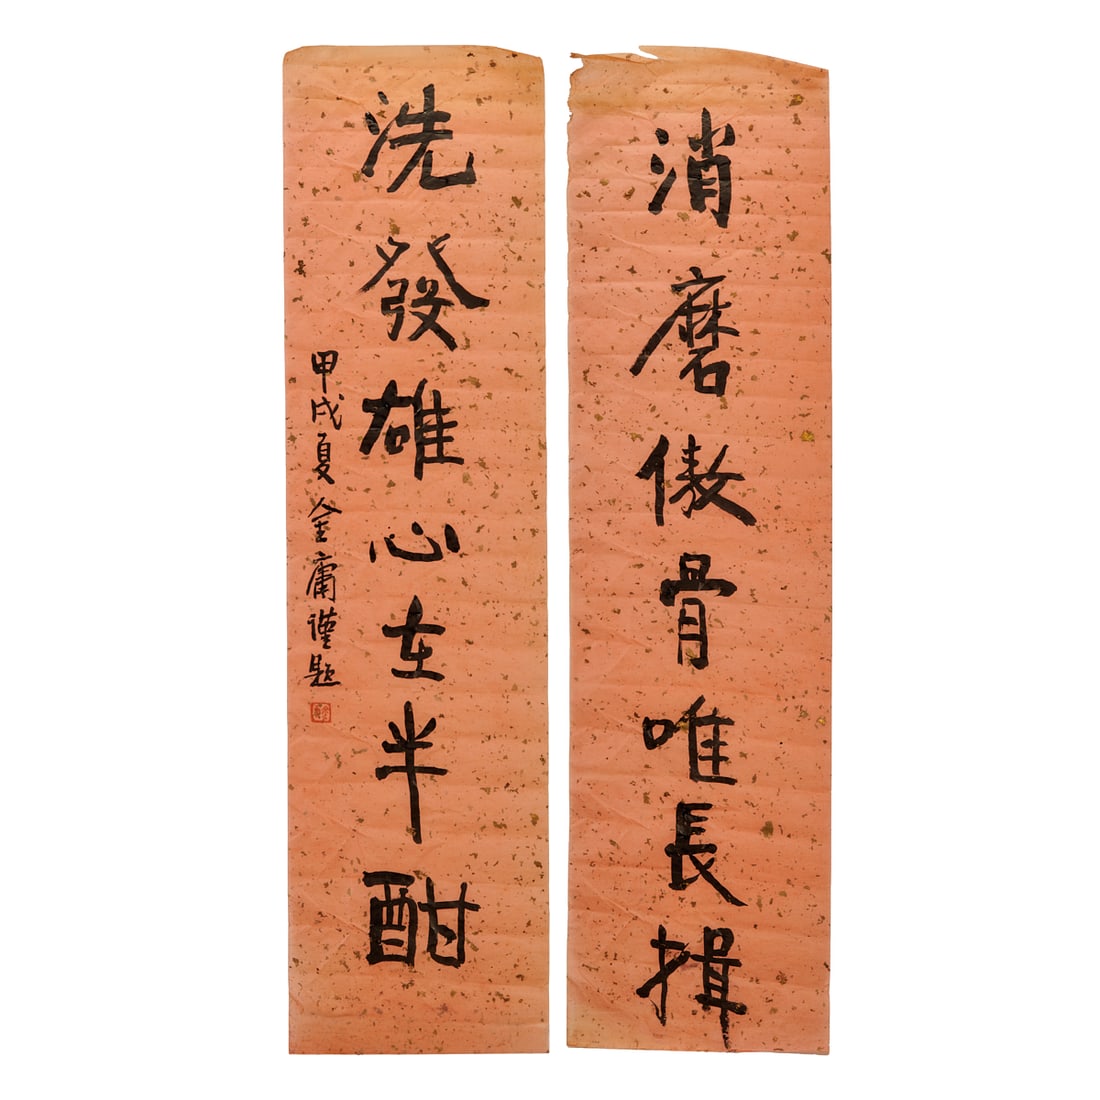 消磨傲骨唯長揖
洗發雄心在半酣
甲戌夏金庸謹題